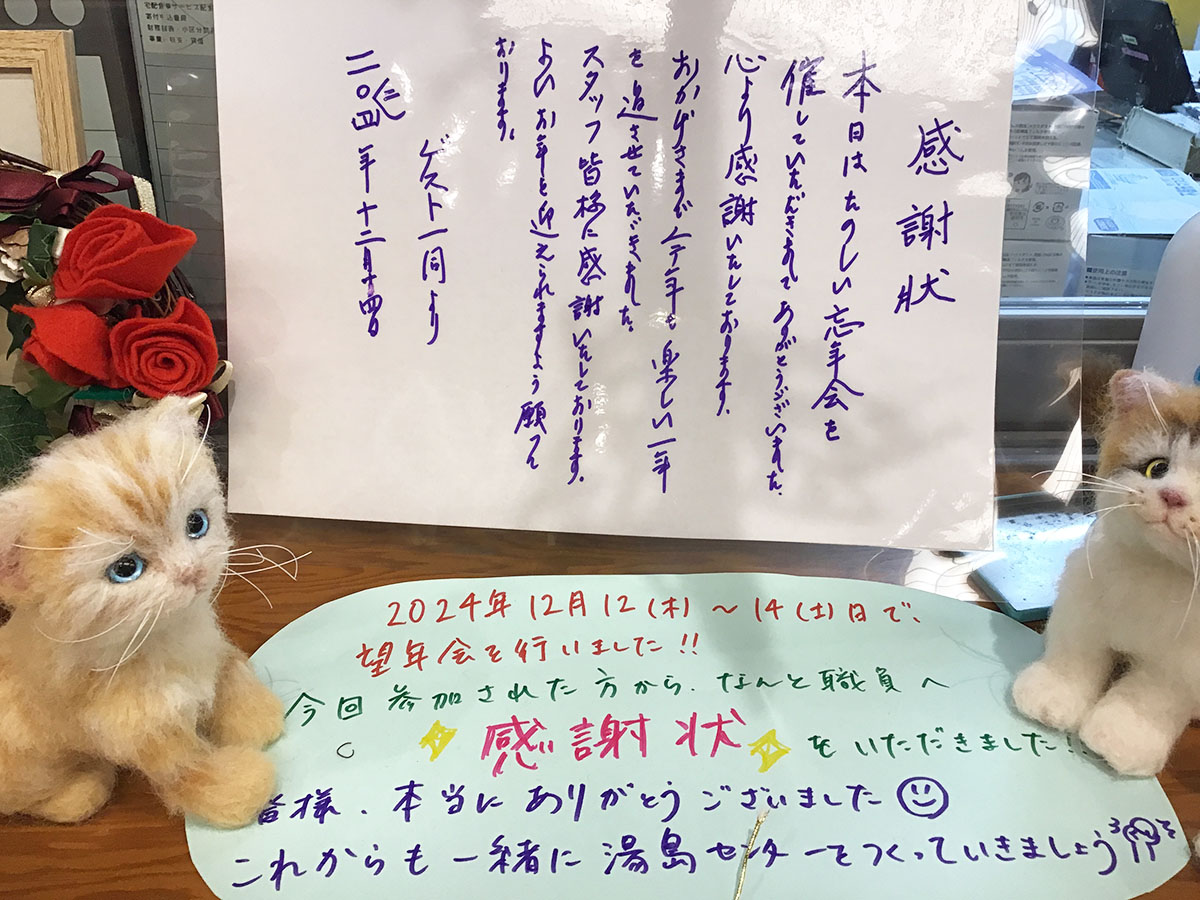 感謝状
本日はたのしい忘年会を
催していただきまして ありがとうございました。
心より感謝いたしております。
おかげさまで 今年も 楽しい一年
を過させていただきました。
スタッフ皆様に感謝いたしております。
よいお年を迎えられますよう願って
おります。
ゲスト一同より
二〇二四年十二月十四日
2024年12月12(木)～14(土)日で、
望年会を行いました!!
今回参加された方から、なんと職員へ
感謝状
をいただきました!!
皆様、本当にありがとうございました
これからも一緒に湯島センターをつくっていきましょう